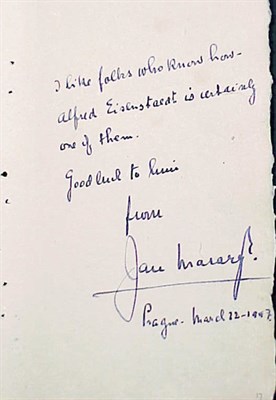 I like folks who know how-
Alfred Eisenstaedt is certainly
one of them.
Good luck to him
from
Jan Masaryk.
Prague - March 22-1947.